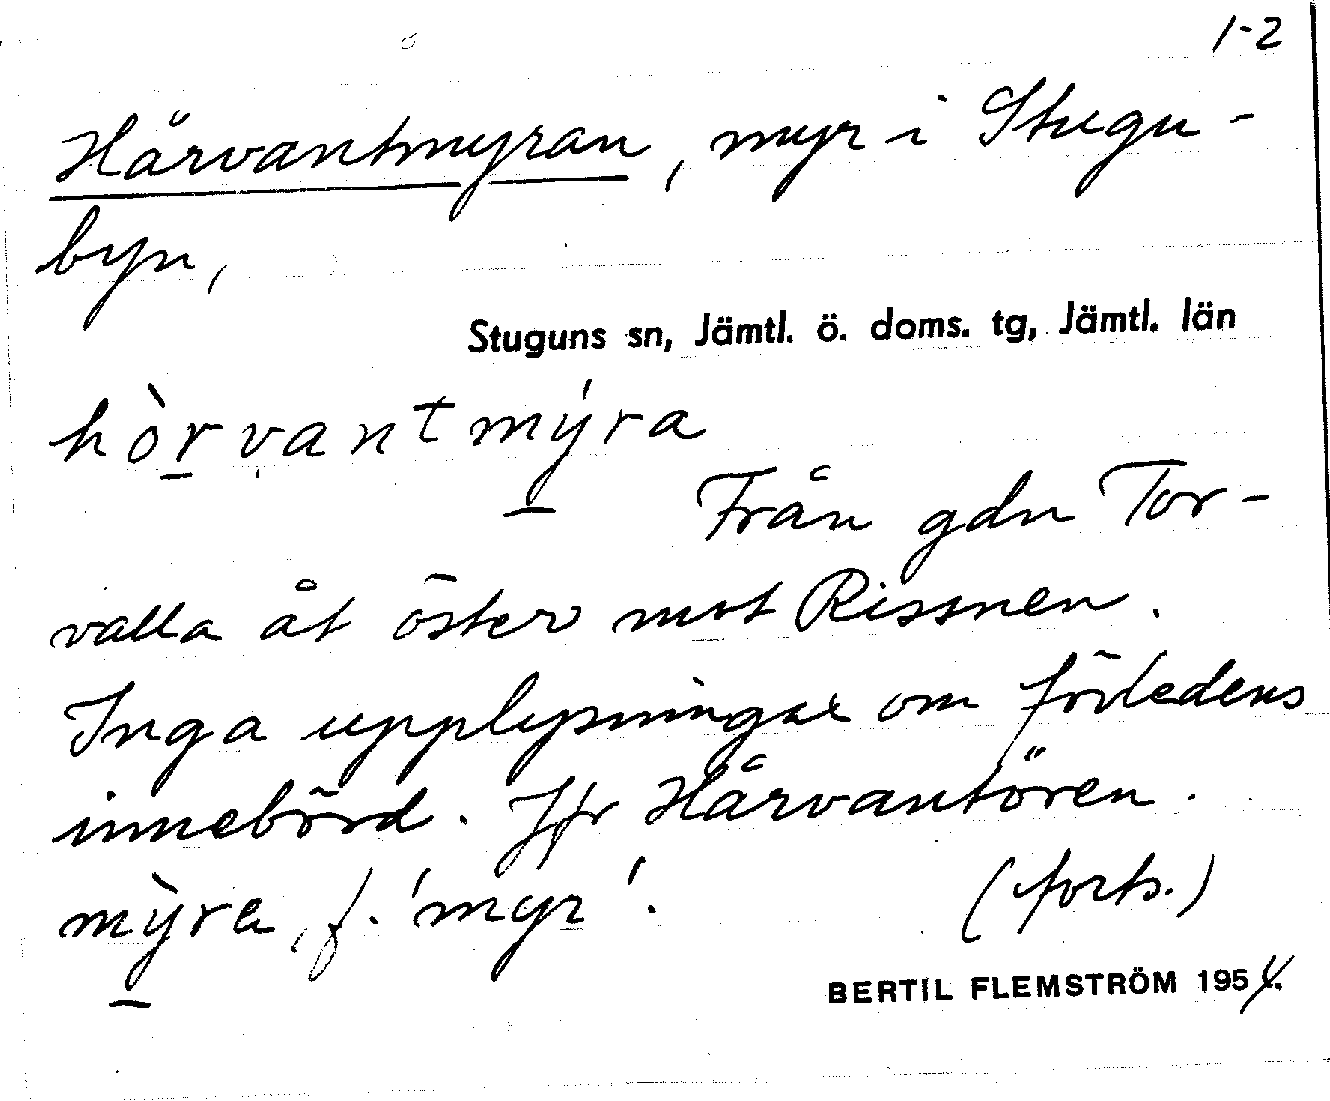 1-2
Hårvantmyran, myr i Stugu-
byn,
Stuguns sn, Jämtl. ö. doms. tg, Jämtl. län
hòrvantmýra
Från gdn Tor-
valla åt öster mot Rissnen.
Inga upplysningar om förledens
innebörd. Jfr Hårvantören.
mỳra, f. 'myr'. (forts.)
BERTIL FLEMSTRÖM 1954.